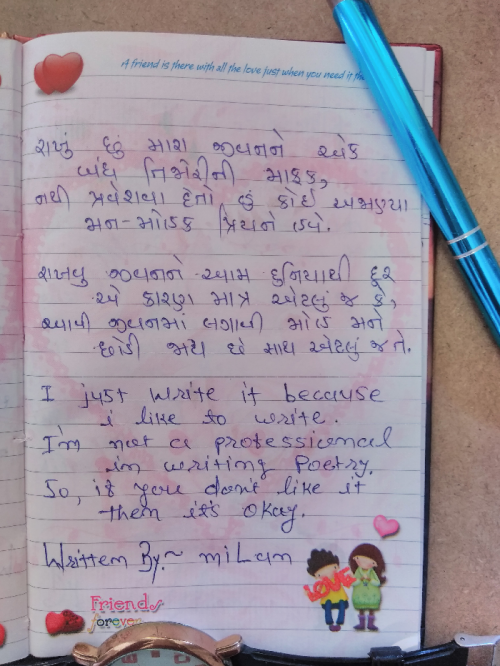 A friend is there with all the love just when you need it the
રાખું છું મારા જીવનને એક
બંધ તિજોરીની માફક,
નથી પ્રવેશવા દેતો હું કોઈ અજાણ્યા
મન-મોહક પ્રિયને હવે.
રાખવુ જીવનને આમ દુનિયાથી દૂર
એ કારણ માત્ર એટલું જ કે,
આવી જીવનમાં લગાવી મોહ મને
છોડી જાય છે સાથ એટલું જ તે.
I just write it because
i like to write.
I'm not a professional
in writing Poetry.
So, if you don't like it
then it's Okay.
Written By:~ miLan
LOVE
Friends
forever